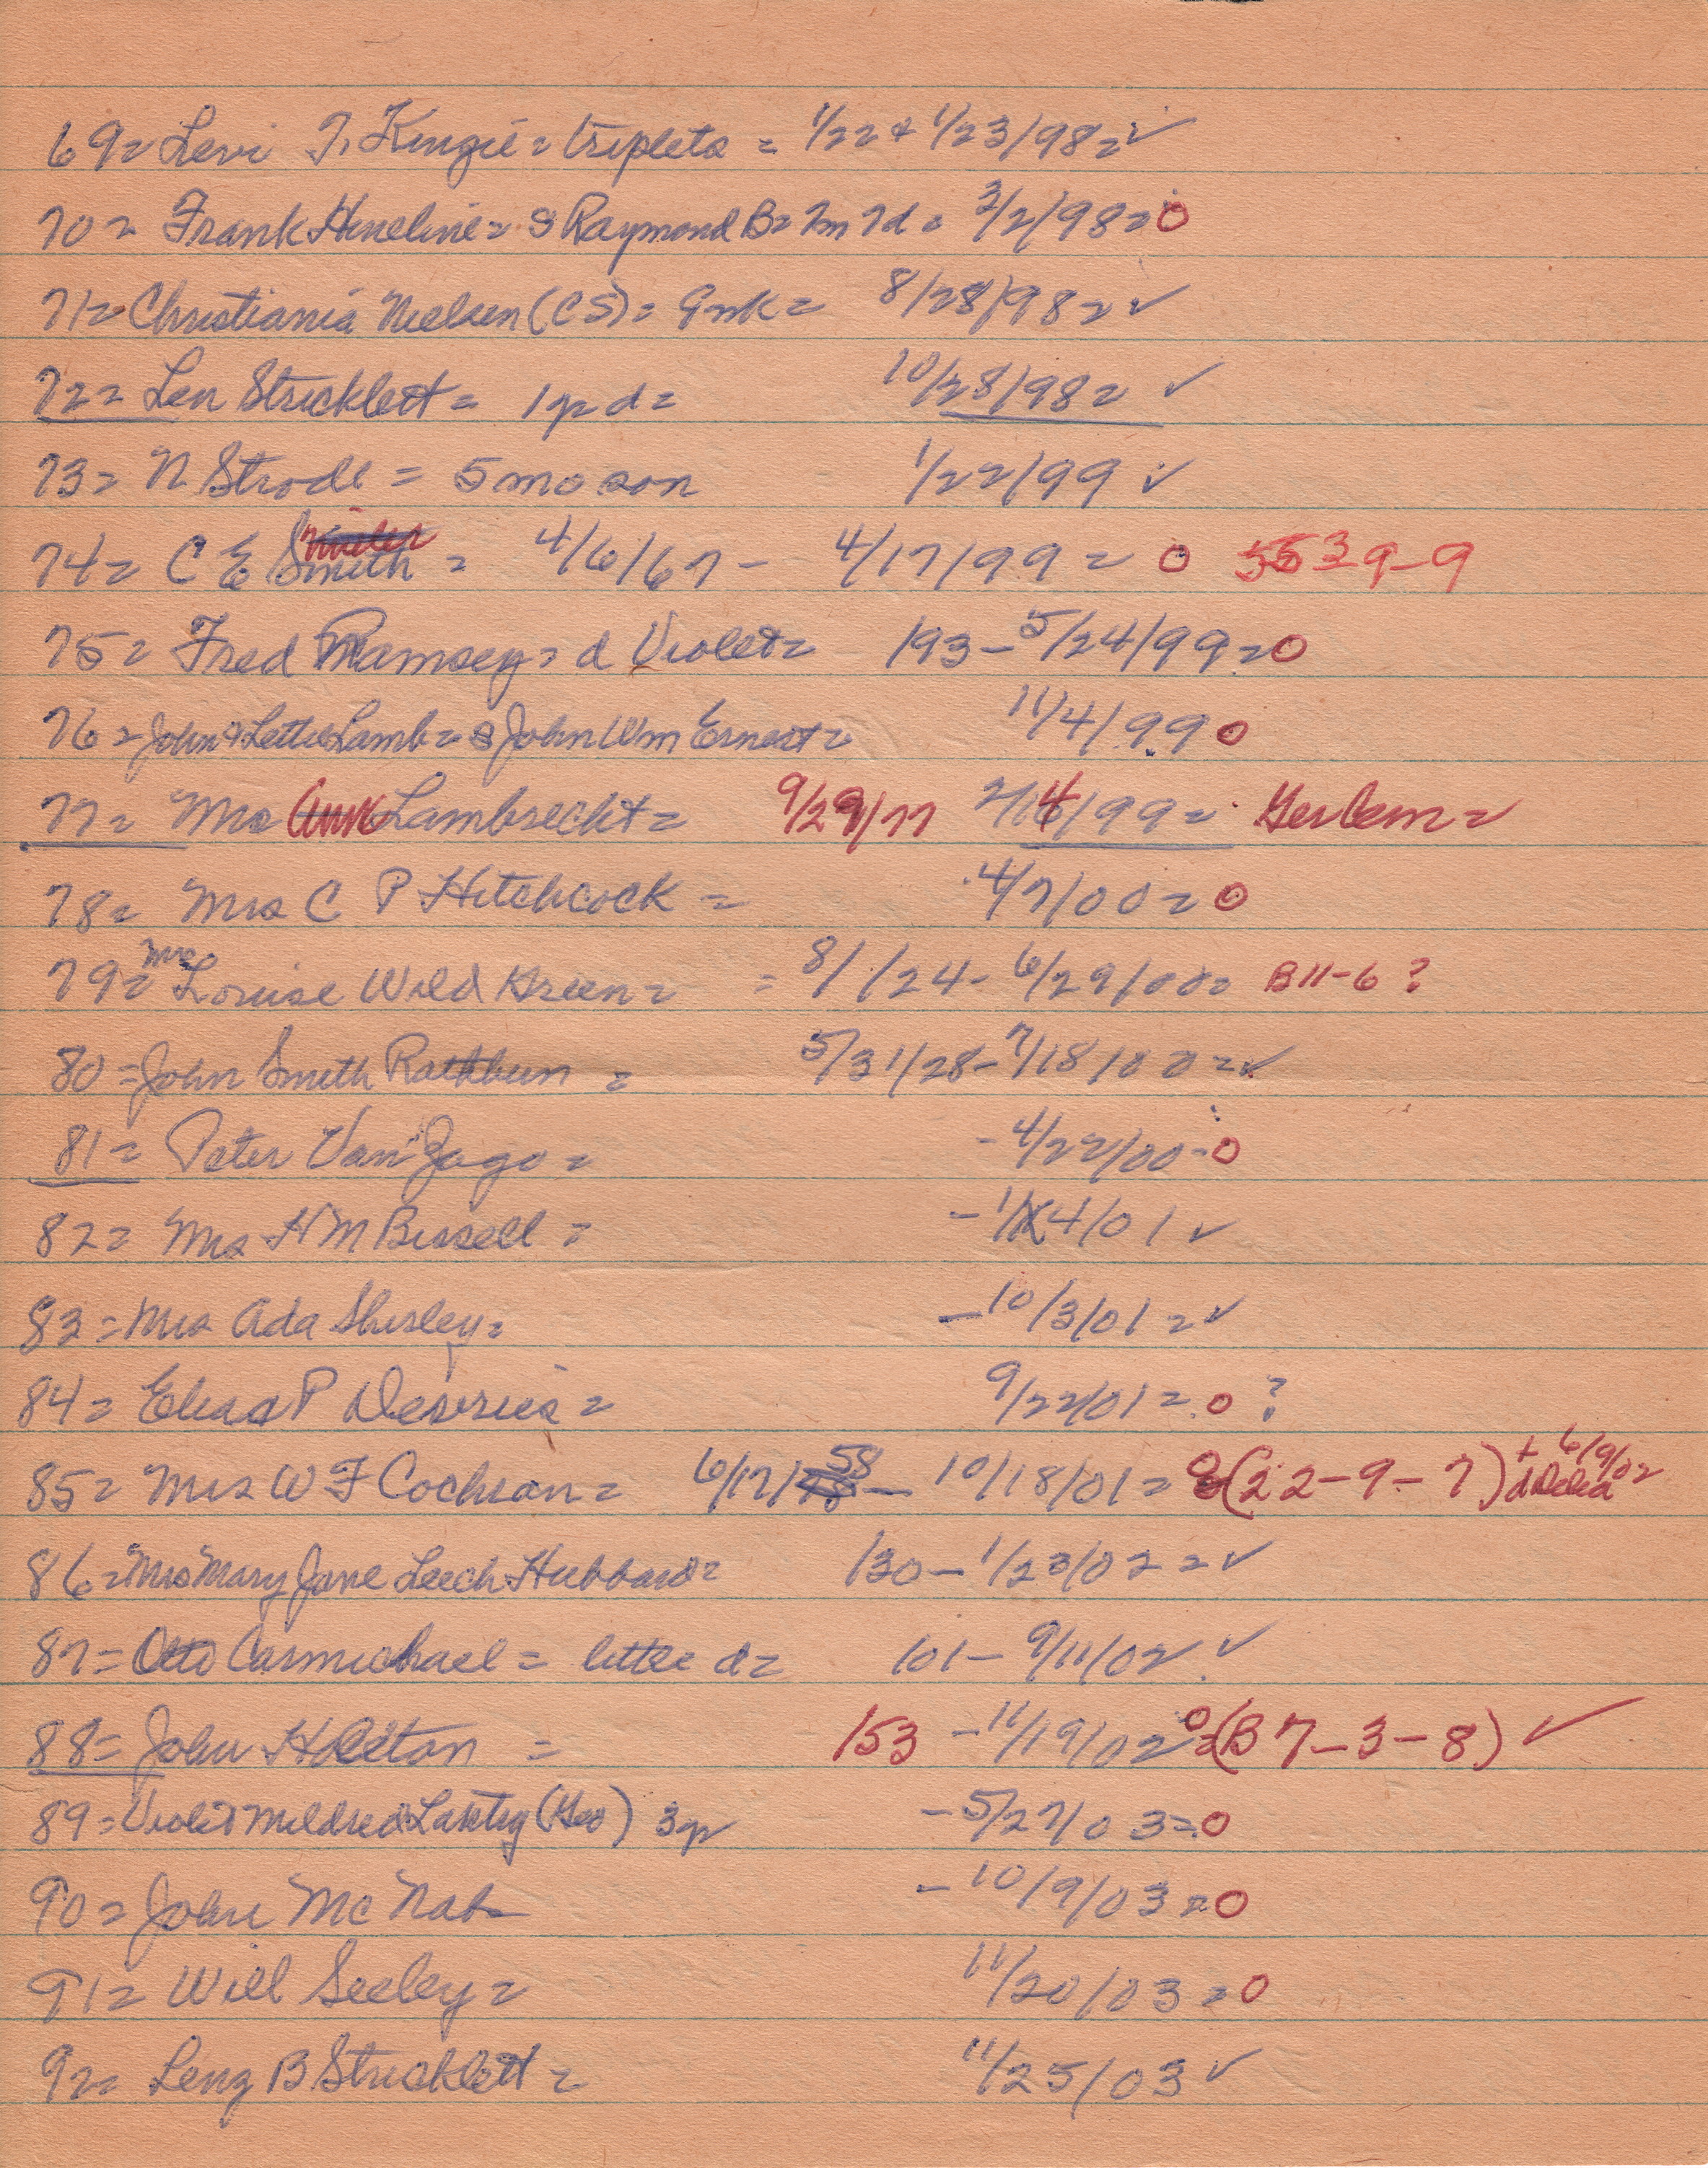 69= Levi T. Kinzie = triplets = 1/22 & 1/23/98 = ✓
70= Frank Hineline = s Raymond B = 7m 7d = 3/2/98 = 0
71= Christiania Nielsen (CS) = 9 mk = 8/28/98 = ✓
72= Len Stricklett = 1 yr d = 10/28/98 = ✓
73= N Strode = 5 mo son 1/22/99 ✓
74= C E Smith = 4/6/67 - 4/17/99 = 0 9-9
75= Fred Ramsey = d Violet = 193 - 5/24/99 = 0
76= John & Lettie Lamb = s John Wm Ernest = 11/4/99 0
77= Mrs Ann Lambrecht = 9/29/77 2/14/99 =
78= Mrs C P Hitchcock = 4/7/00 = 0
79= Mrs Louise Wild Green = = 8/ /24 - 6/29/00 = B11-6 ?
80= John Smith Rathbun = 5/31/28 - 7/18/00 = ✓
81= Peter Van Jago = - 4/22/00 - 0
82= Mrs H M Bissell = - 1/4/01 ✓
83= Mrs Ada Shirley = - 10/3/01 = ✓
84= P = 9/22/01 = 0 ?
85= Mrs W F Cochran = 6/17/58 - 10/18/01 = (22-9-7) + d Delia 6/9/02
86= Mrs Mary Jane Leech Hubbard = 130 - 1/23/02 = ✓
87= Otto Carmichael = little d = 101 - 9/11/02 ✓
88= John Holeton = 153 - 11/19/02 = 0 (B 7-3-8) ✓
89= Violet Mildred Lantry (Geo) 3 yr - 5/27/03 = 0
90= John McNab - 10/9/03 = 0
91= Will Seeley = 11/20/03 = 0
92= Leng B Stricklett = 11/25/03 ✓